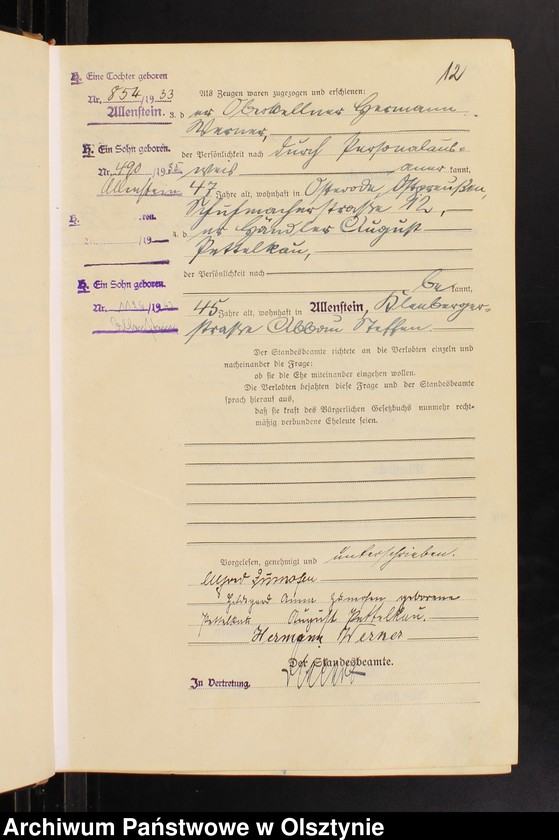 12
H. Eine Tochter geboren
Nr. 854/1933
Allenstein.
H. Ein Sohn geboren.
Nr. 490/19
Allenstein
H. ren.
/19
H. Ein Sohn geboren.
Nr. /19
Als Zeugen waren zugezogen und erschienen:
3. der Oberkellner Hermann
Werner,
der Persönlichkeit nach durch Personalaus-
weis anerkannt,
47 Jahre alt, wohnhaft in Osterode Ostpreußen,
Schuhmacherstraße 12,
4. der Händler August
Pettelkau,
der Persönlichkeit nach
bekannt,
45 Jahre alt, wohnhaft in Allenstein, Kleeberger-
straße Abbau Steffen.
Der Standesbeamte richtete an die Verlobten einzeln und
nacheinander die Frage:
ob sie die Ehe miteinander eingehen wollen.
Die Verlobten bejahten diese Frage und der Standesbeamte
sprach hierauf aus,
daß sie kraft des Bürgerlichen Gesetzbuchs nunmehr recht-
mäßig verbundene Eheleute seien.
Vorgelesen, genehmigt und unterschrieben.
Alfred
Hildegard Anna geborene
Pettelkau August Pettelkau.
Hermann Werner
Der Standesbeamte.
In Vertretung.
Archiwum Państwowe w Olsztynie